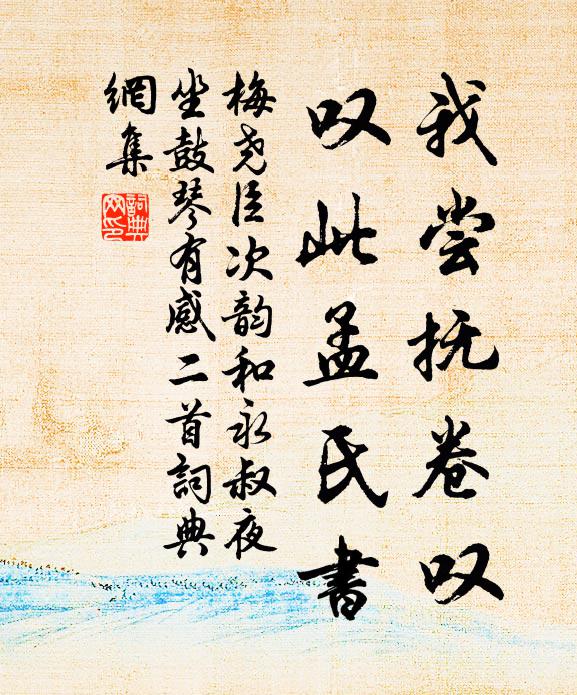 我尝抚卷叹
叹此孟氏書
梅尧臣次韵和永叔夜
坐鼓琴有感二首詞典
網集
詞典
网印